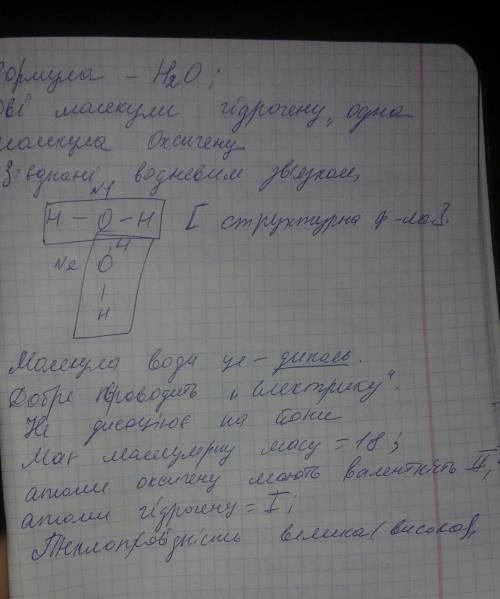 Формула - H2O;
Дві малекули гідрогену, одна
малкула Оксигену
З'єднані водневим звязком,
N1
H - O - H [ структурна ф-ла].
H
N2 O
H
Малекула води це - диполь.
Добре проводить "електрику".
Не дисоціює на йони
Має малекулярну масу = 18;
атоми оксигену мають валентність II,
атоми гідрогену = I;
Теплопровідність велика (висока),